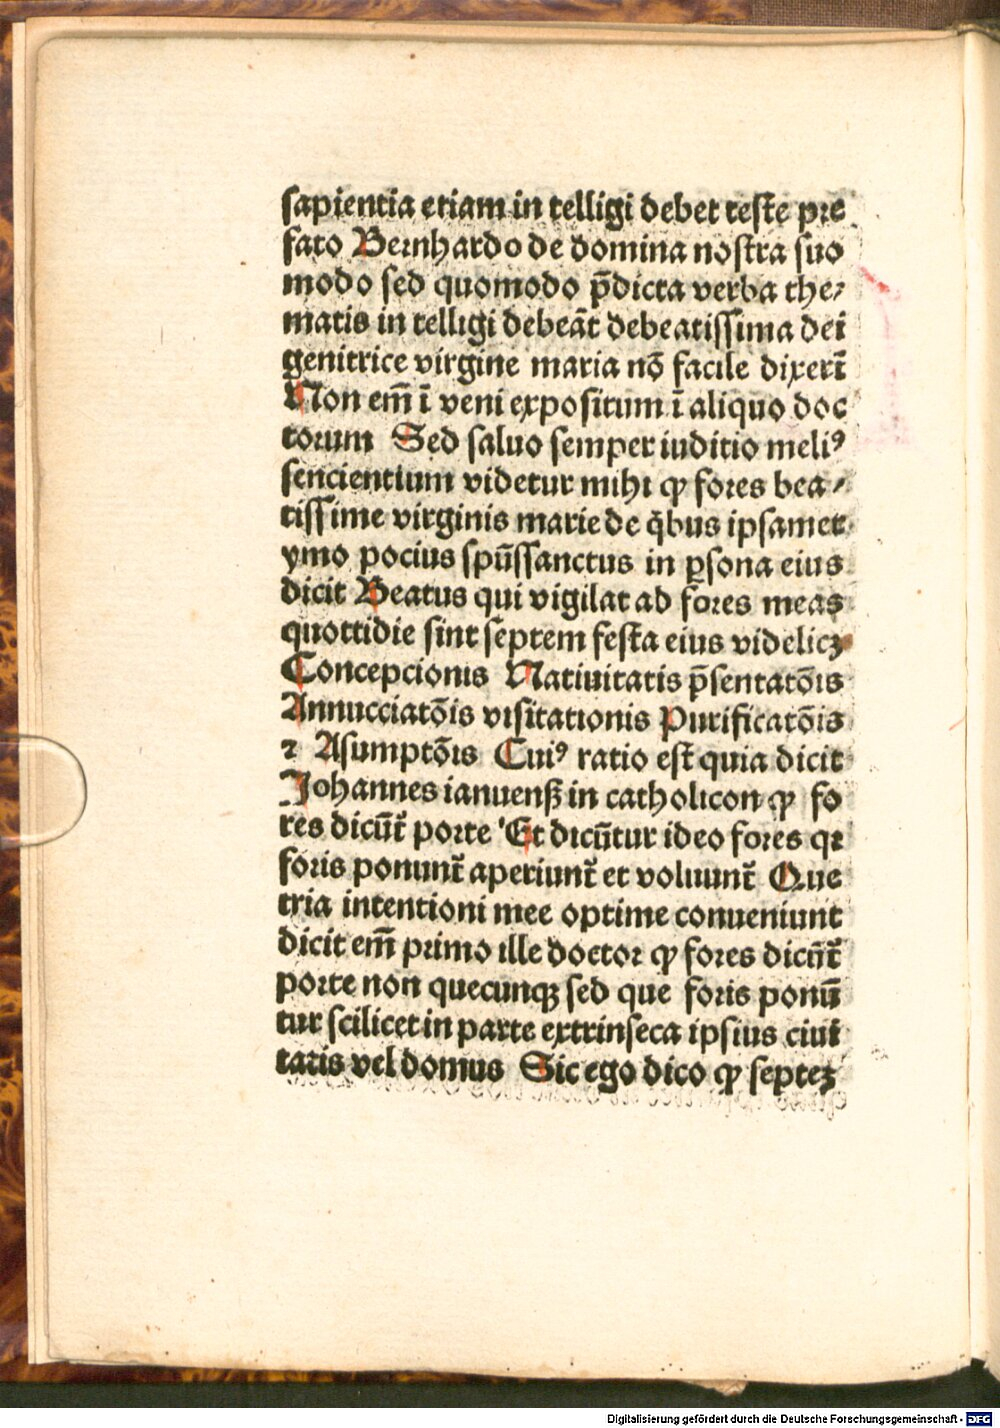 sapientia etiam in telligi debet teste pre
fato Bernhardo de domina nostra suo
modo sed quomodo p̄dicta verba the⸗
matis in telligi debeāt debeatissima dei
genitrice virgine maria nō facile dixerī
Non em̄ ī veni expositum ī aliquo doc
torum Sed saluo semper iuditio meliꝰ
sencientium videtur mihi ꝙ fores bea⸗
tissime virginis marie de q̄bus ipsamet
ymo pocius spūssanctus in ꝑsona eius
dicit Beatus qui vigilat ad fores meas
quottidie sint septem festa eius videlicꝫ
Concepcionis Natiuitatis p̄sentatōis
Annucciatōis visitationis Purificatōis
⁊ Asumptōis Cuiꝰ ratio est quia dicit
Johannes ianuenß in catholicon ꝙ fo
res dicūt̄ porte Et dicūtur ideo fores qꝛ
foris ponunt̄ aperiunt̄ et voluunt̄ Que
tria intentioni mee optime conueniunt
dicit em̄ primo ille doctor ꝙ fores dicūt̄
porte non quecunqꝫ sed que foris ponū
tur scilicet in parte extrinseca ipsius ciui
tatis vel domus Sic ego dico ꝙ septeꝫ
Digitalisierung gefördert durch die Deutsche Forschungsgemeinschaft - DFG